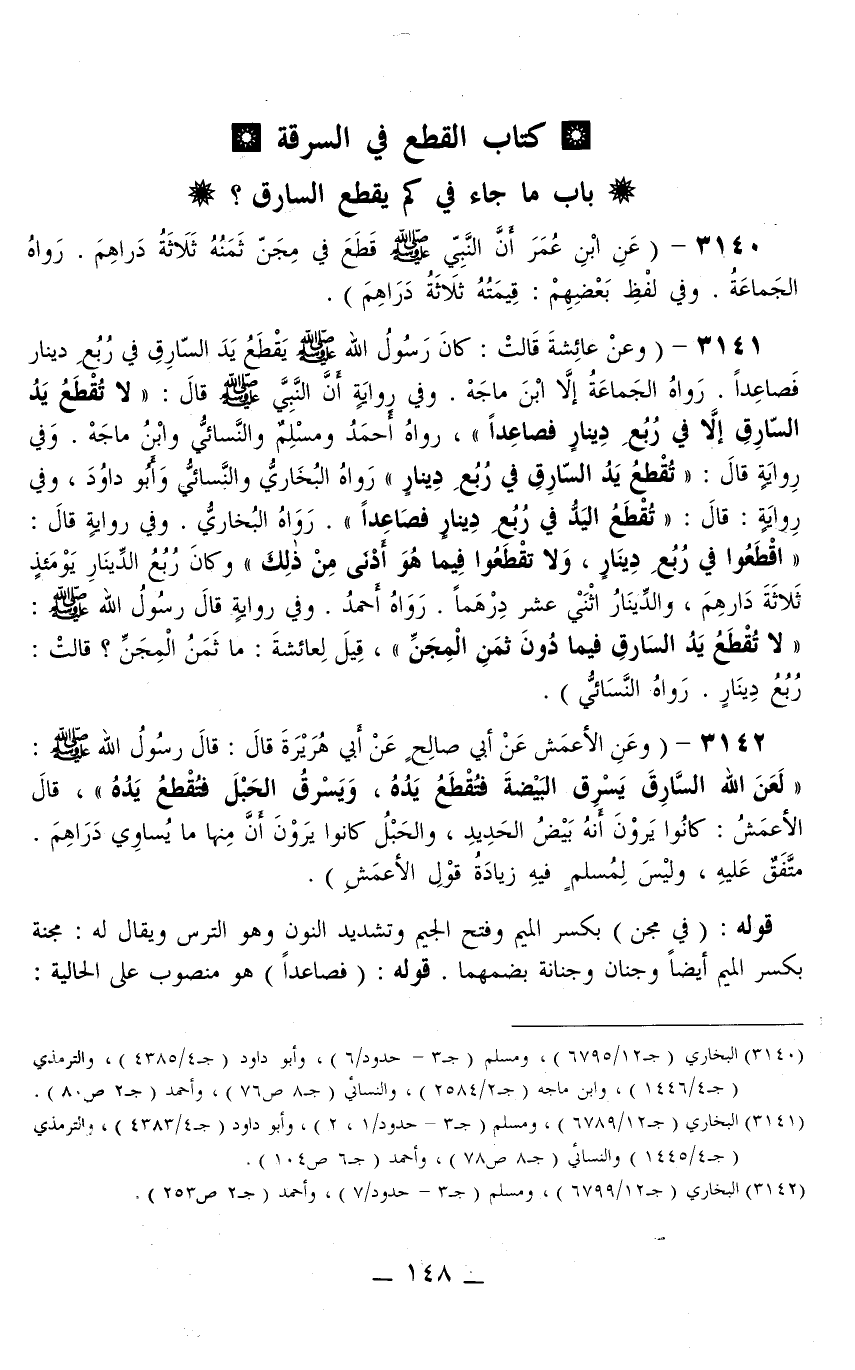 كتاب القطع في السرقة
باب ما جاء في كم يقطع السارق ؟
٣١٤٠ – ( عَنِ ابْنِ عُمَرَ أَنَّ النَّبِيّ ﷺ قَطَعَ في مِجَنّ ثَمَنُهُ ثَلَاثَةُ دَراهِمَ . رَواهُ
الجَماعَةُ . وفي لفْظِ بَعْضِهِمْ : قِيمَتُهُ ثلَاثَةُ دَرَاهِمَ ) .
٣١٤١ – ( وعنْ عائِشةَ قَالتْ : كانَ رَسُولُ الله ﷺ يَقْطَعُ يَدَ السّارِقِ في رُبُعِ دينار
فَصاعِداً . رَواهُ الجَماعَةُ إلَّا ابْنَ ماجَهْ . وفي رِوايَةٍ أَنَّ النَّبيَّ ﷺ قالَ : « لا تُقْطَعُ يَدُ
السّارِقِ إلَّا في رُبُعِ دِينارٍ فصاعِداً » ، رواهُ أَحمَدُ ومسْلِمٌ والنَّسائيُّ وابْنُ ماجَهْ . وَفي
رِوايَةٍ قالَ : « تُقْطعُ يَدُ السّارِقِ في رُبُعِ دِينارٍ » رَواهُ البُخَاريُّ والنَّسائيُّ وَأَبُو داوُدَ ، وفي
رِوايَةٍ : قالَ : « تُقْطَعُ اليَدُّ في رُبُعِ دِينارٍ فصَاعِداً » . رَوَاهُ البُخاريُّ . وفي روايةٍ قالَ :
« اقْطَعُوا في رُبُعِ دِينَارٍ ، وَلا تقْطَعُوا فِيما هُوَ أَدْنَى مِنْ ذٰلِكَ » وكانَ رُبُعُ الدِّينَارِ يَوْمَئذٍ
ثَلَاثَةَ دَارهِمَ ، والدِّينَارُ اثْنَيْ عشر دِرْهَماً . رَوَاهُ أَحمدُ . وفي روايةٍ قالَ رسُولُ الله ﷺ :
« لا تُقْطَعُ يَدُ السارِقِ فيما دُونَ ثمَنِ الْمِجَنِّ » ، قِيلَ لِعائشةَ : ما ثَمَنُ الْمِجَنِّ ؟ قالتْ :
رُبُعُ دِينَارٍ . رَواهُ النَّسَائيُّ ) .
٣١٤٢ – ( وعَنِ الأعمَش عَنْ أبي صالِحٍ عَنْ أَبي هُرَيْرَةَ قالَ : قالَ رسُولُ الله ﷺ :
« لَعَنَ الله السَّارِقَ يَسْرِق البَيْضةَ فتُقْطَعُ يَدُهُ ، وَيَسْرقُ الحَبْلَ فتُقْطعُ يَدُهُ » ، قالَ
الأعمَشُ : كانُوا يَروْنَ أَنهُ بَيْضُ الحَديدِ ، والحَبْلُ كانوا يَروْنَ أَنَّ مِنها ما يُساوِي دَرَاهِمَ .
متَّفَقٌ عَليهِ ، وليْسَ لِمُسلمٍ فيهِ زيادَةُ قوْلِ الأعمَشِ ) .
قوله : ( في مجن ) بكسر الميم وفتح الجيم وتشديد النون وهو الترس ويقال له : مجنة
بكسر الميم أيضاً وجنان وجنانة بضمهما . قوله : ( فصاعداً ) هو منصوب على الحالية :
(٣١٤٠) البخاري ( جـ١٢/٦٧٩٥ ) ، ومسلم ( جـ٣ – حدود/٦ ) ، وأبو داود ( جـ٤/٤٣٨٥ ) ، والترمذي
( جـ٤/١٤٤٦ ) ، وابن ماجه ( جـ٢/٢٥٨٤ ) ، والنسائي ( جـ٨ ص٧٦ ) ، وأحمد ( جـ٢ ص٨٠ ) .
(٣١٤١) البخاري ( جـ١٢/٦٧٨٩ ) ، ومسلم ( جـ٣ – حدود/١ ، ٢ ) ، وأبو داود ( جـ٤/٤٣٨٣ ) ، والترمذي
( جـ٤/١٤٤٥ ) والنسائي ( جـ٨ ص٧٨ ) ، وأحمد ( جـ٦ ص١٠٤ ) .
(٣١٤٢) البخاري ( جـ١٢/٦٧٩٩ ) ، ومسلم ( جـ٣ – حدود/٧ ) ، وأحمد ( جـ٢ ص٢٥٣ ) .
– ١٤٨ –